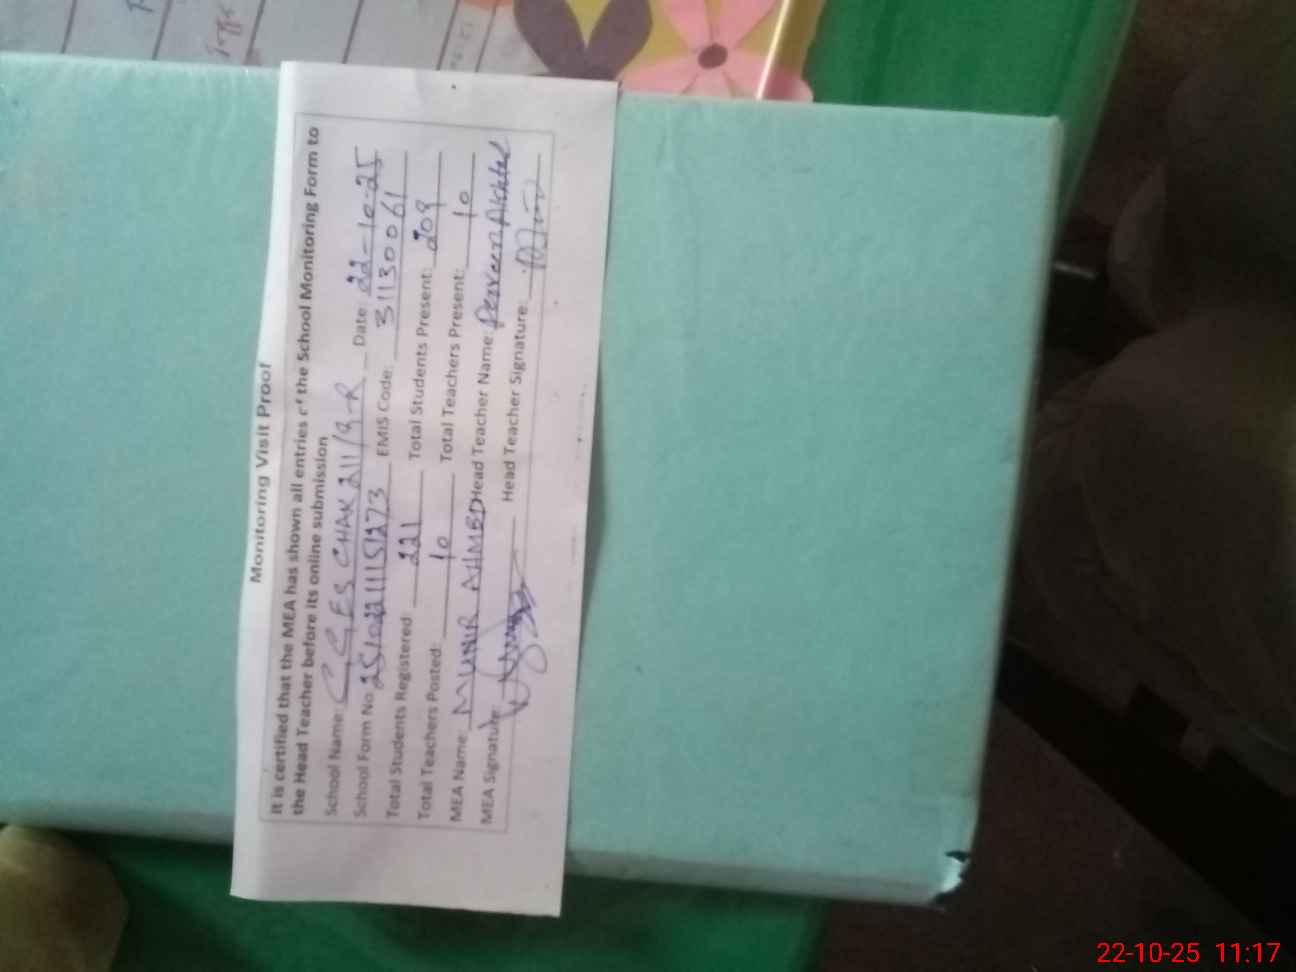 Monitoring Visit Proof
It is certified that the MEA has shown all entries of the School Monitoring Form to
the Head Teacher before its online submission
School Name: GGES CHAK 211/9-R Date: 22-10-25
School Form No: 25102211151273 EMIS Code: 31130061
Total Students Registered: 221 Total Students Present: 209
Total Teachers Posted: 10 Total Teachers Present: 10
MEA Name: MUNIR AHMED Head Teacher Name: Perveen Akhtar
MEA Signature: Head Teacher Signature:
22-10-25 11:17